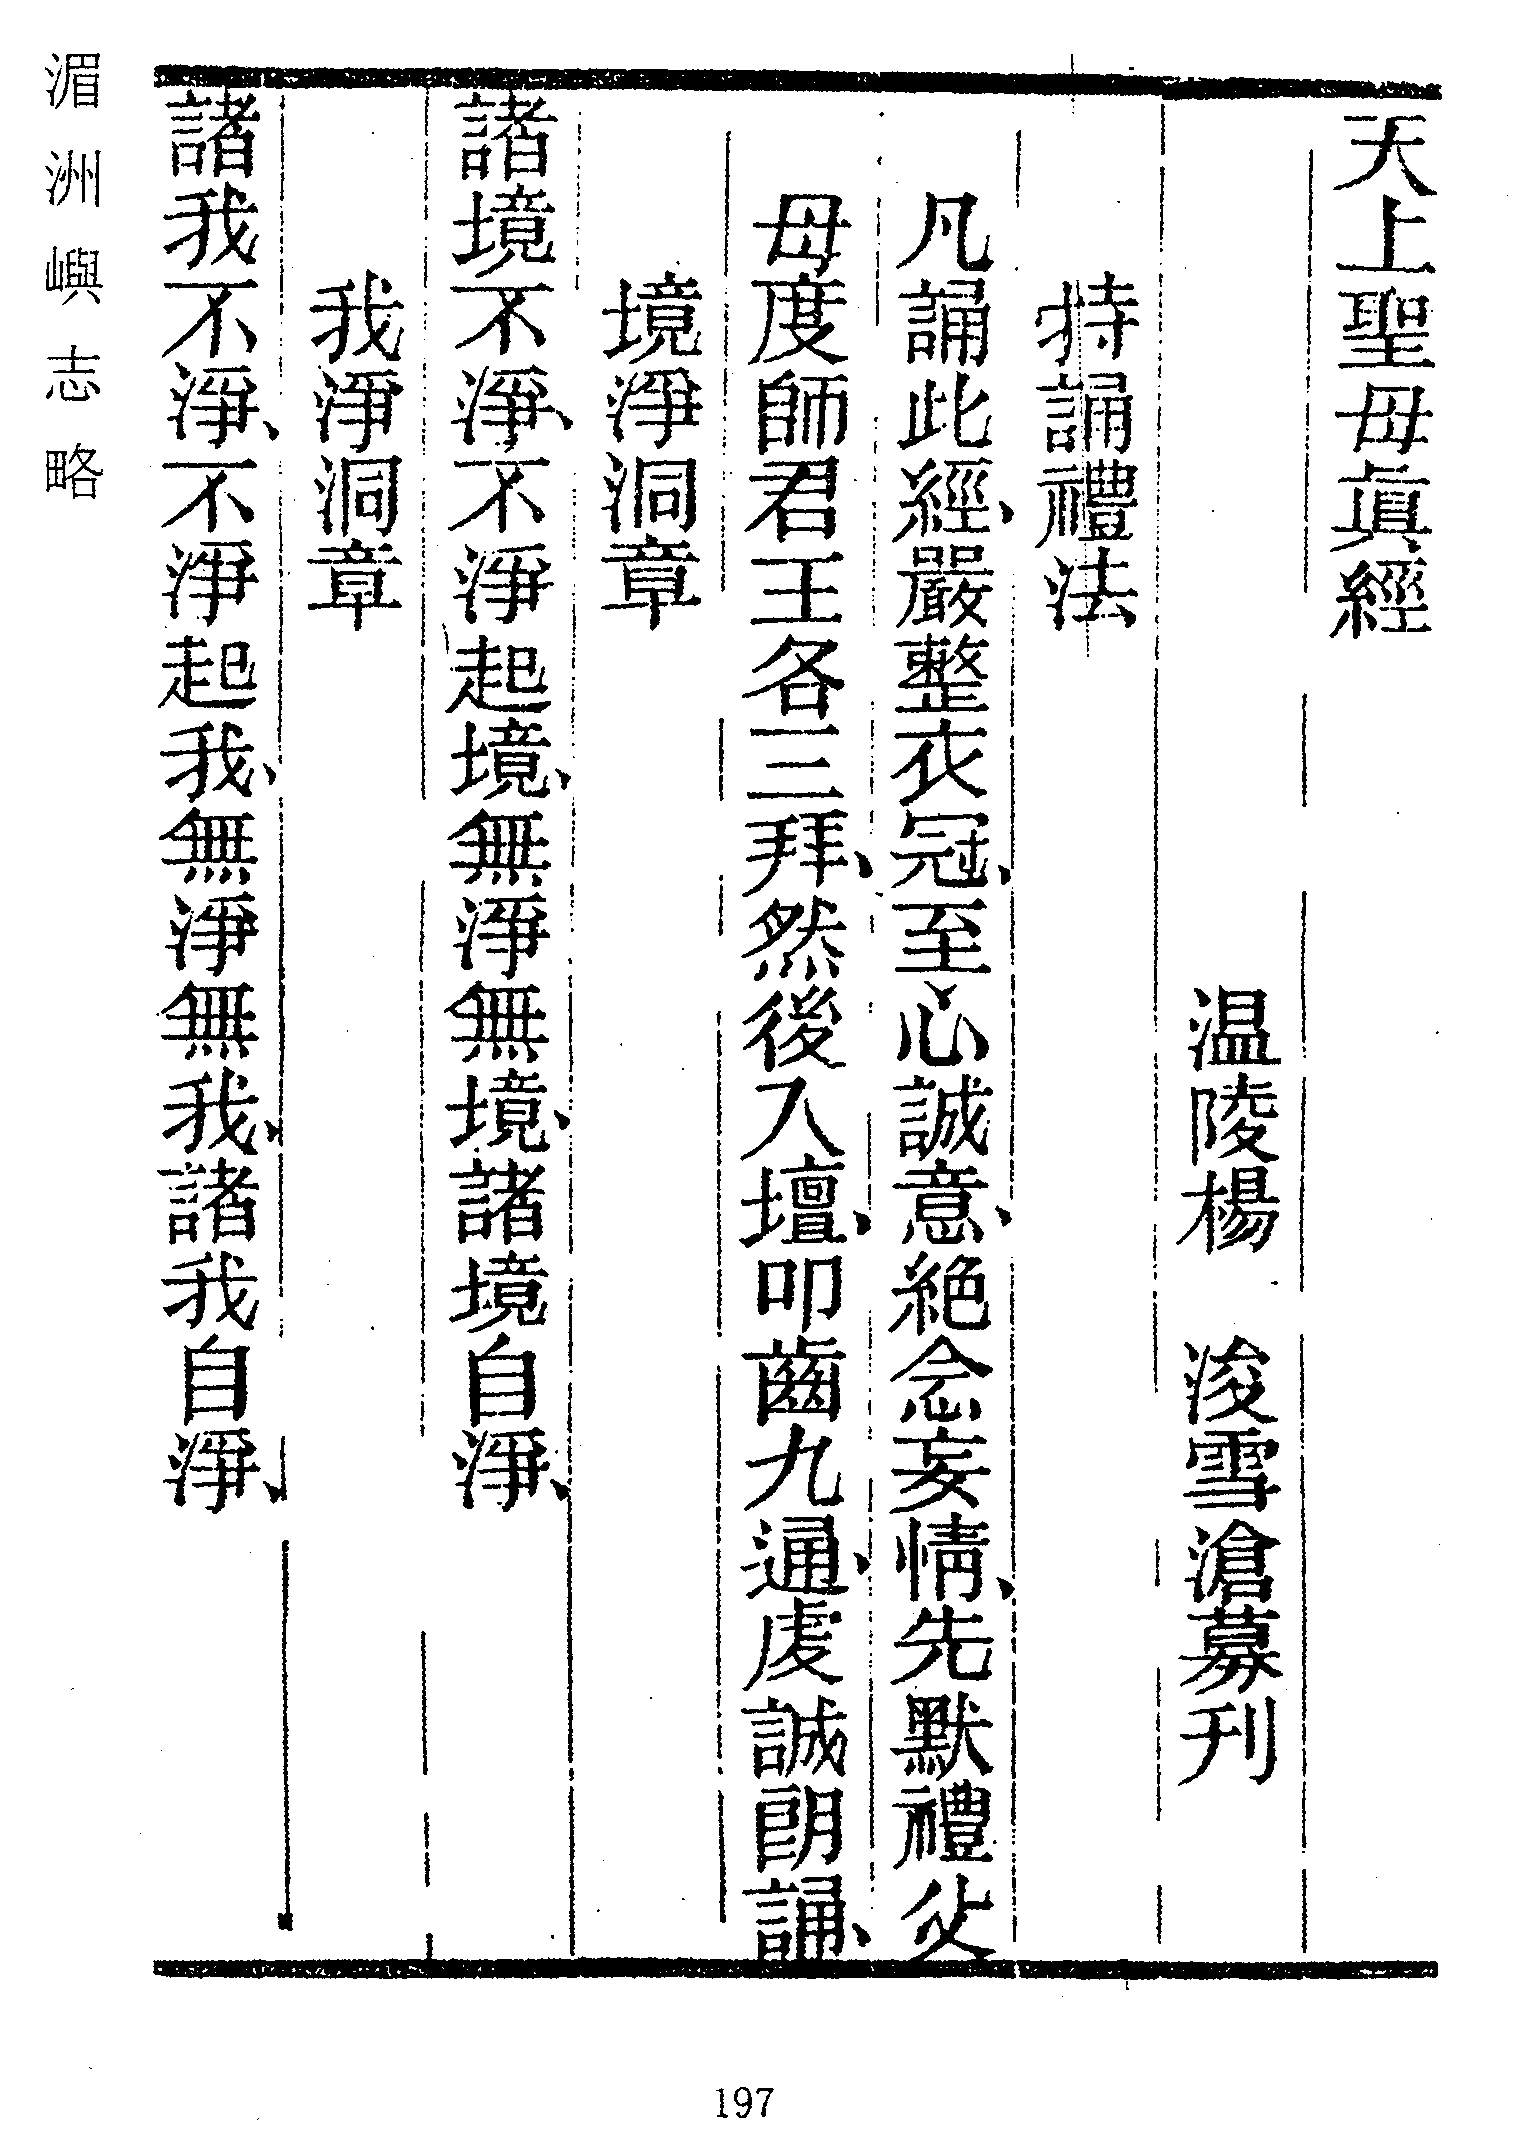 天上聖母眞經
温陵楊　浚雪滄募刊
持誦禮法
凡誦此經、嚴整衣冠、至心誠意、絕念妄情、先默禮父
母度師君王各三拜、然後入壇、叩齒九通、虔誠朗誦、
境淨洞章
諸境不淨、不淨起境、無淨無境、諸境自淨、
我淨洞章
諸我不淨、不淨起我、無淨無我、諸我自淨、
湄洲嶼志略
197